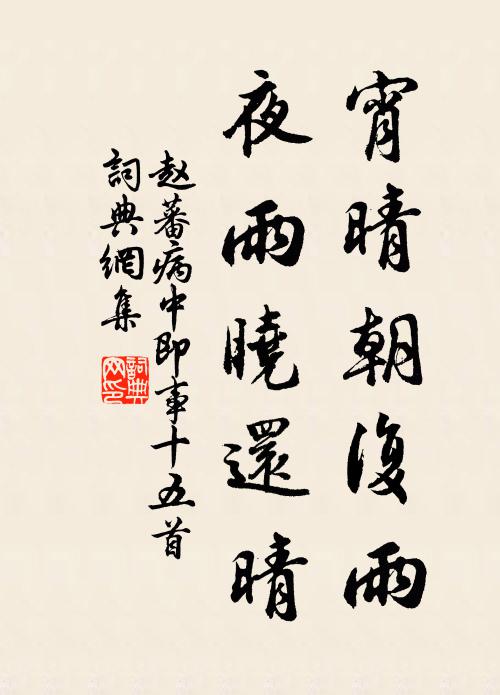 宵晴朝復雨
夜雨曉還晴
赵蕃病中即事十五首
詞典網集
詞典
网印